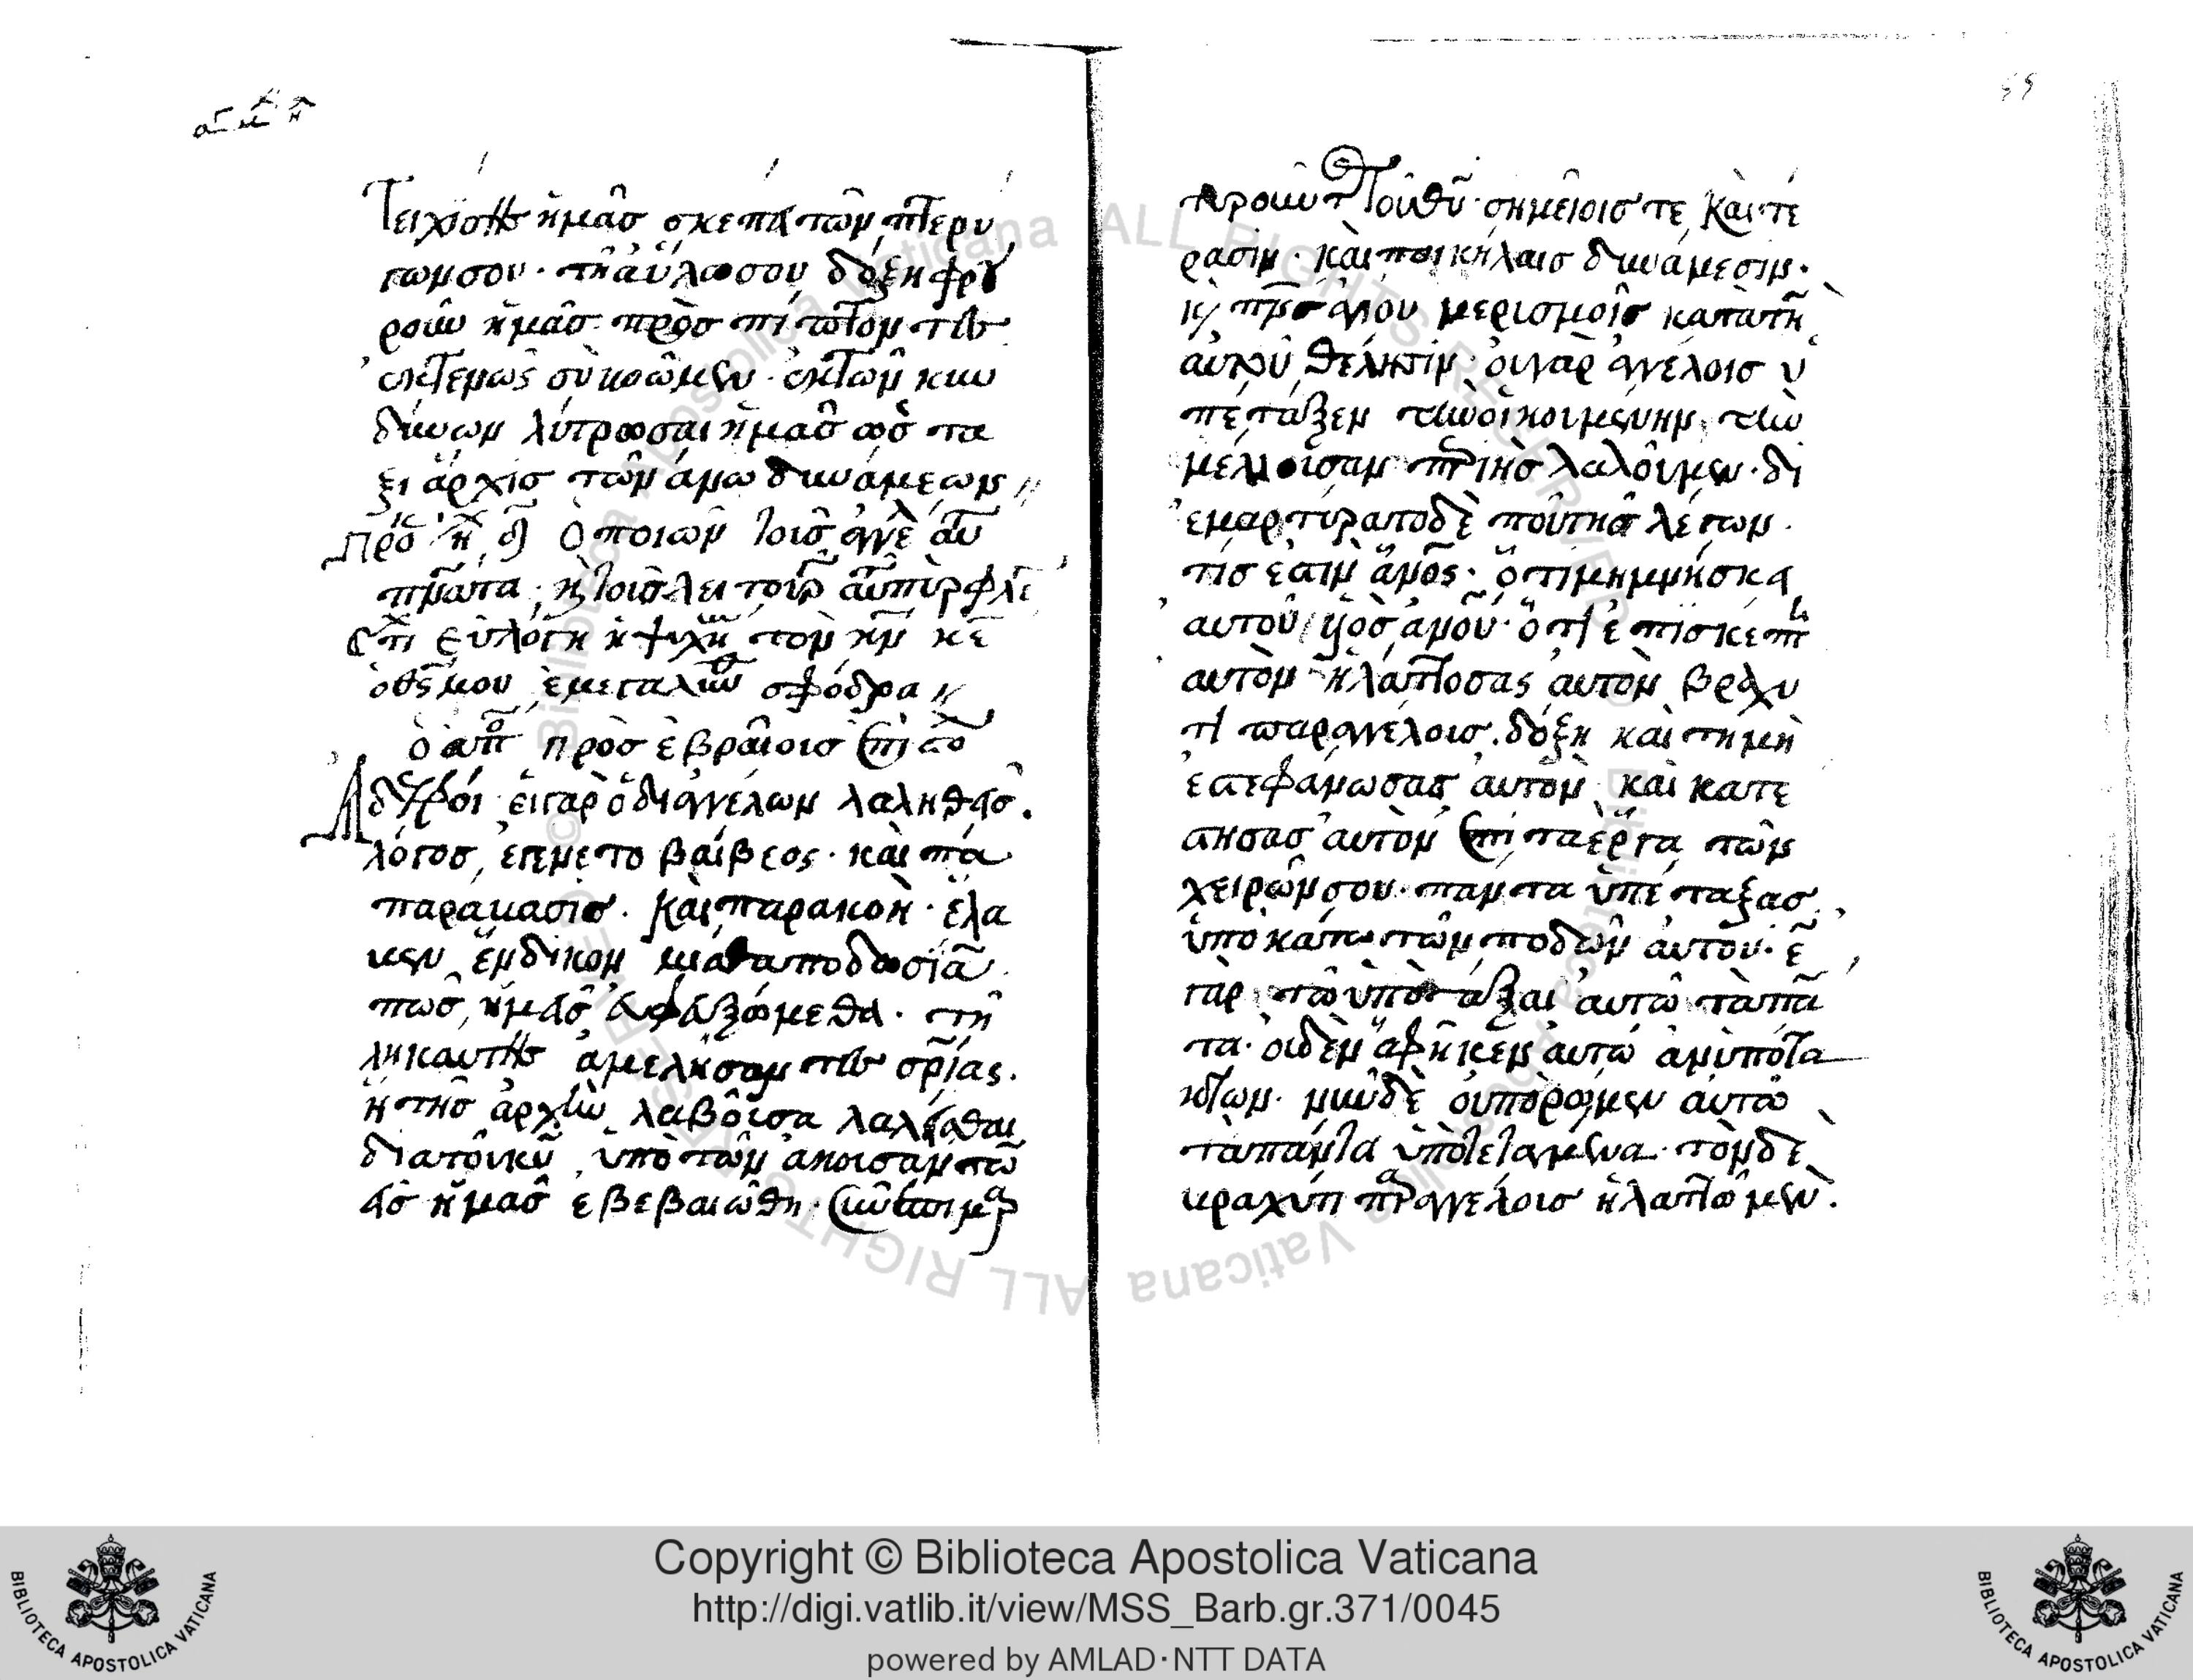 Τειχίσης ἡμᾶσ σκέπη τῶν πτερύ
γων σου · τῆ ἀΰλω σου δόξη φρου
ροῦν ἡμᾶσ προσπίπτοντ
ἐκτενῶς σὺ βοῶμεν · ἐκ τῶν κιν
δύνων λύτρωσαι ἡμᾶσ ὡσ τα
ξι άρχισ τῶν άνω δυνάμεων
Προκ ἠχ δ Ὁ ποιῶν τοὺσ ἀγγέλ αὐτ
πνατα, κ τοὺσ λειτουρ αὐτ πῦρ φλε
στι Εὐλόγη ἡ ψυχή μου τὸν κν κε
ὁ θς μου ἐμεγαλύνθ σφόδρα
ὁ ἀπο πρὸσ ἑβραίοισ ἐπιστο
Ἀδελφοί · εἰ γαρ ὁ δι ἀγγέλων λαληθὰσ
λόγοσ, ἐγένετο βαίβεος · καὶ πα
παράβασισ · καὶ παρακοὴ · ἔλα
βεν ἔνδικον μισθαποδοσίαν
πῶσ, ἡμᾶσ ἀφαξώμεθα · τη
λικαύτησ ἀμελήσαν τες σρίας ·
ἥ τησ ἀρχὴν λαβοῦσα λαλῆσθαι
δια τοῦ κυ, ὑπὸ τῶν ἀκουσαντω
ἀσ ἡμᾶσ ἐβεβαιώθη · συνεπιμαρ
τυροῦντ Τοῦ θυ · σημείοισ τε καὶ τέ
ρασιν · καὶ ποικήλαισ δυνάμεσιν ·
κ πνσ ἁγίου μερισμοῖσ κατὰ τὴ
αὐτοῦ θέλησιν · οὐ γαρ ἀγγέλοισ ὑ
πέταξεν τὴν οἰκουμένην, τὴν
μέλλουσαν περὶ ἧσ λαλοῦμεν · δι
εμαρτύρατο δὲ που τησ λέγων ·
τίσ ἐστιν ἄνος · ὅτι μημμνήσκη
αυτοῦ, ἢ υἱὸσ ἀνου · ὅτι ἐπισκέπτη
αυτὸν ἠλάττοσας αὐτὸν βραχυ
τὶ παρ αγγέλοισ · δόξη καὶ τημὴ
ἐστεφάνωσασ αὐτὸν, καὶ κατε
στησασ αὐτὸν ἐπὶ τα ἔργα τῶν
χειρῶν σου · παντα ὑπέταξασ
ὑποκάτω τῶν ποδῶν αὐτοῦ · ἐ
γὰρ τῶ ὑποτάξαι αὐτῶ τὰ πα
τα · οὐδὲν ἀφῆκεν αυτῶ ἀνυπότα
κτων · νῦν δὲ οὔπο ὁρῶμεν αυτῶ
τὰ πάντα ὑποτεταγμένα · τὸν δὲ
βραχύτι παρ ἀγγέλοισ ἠλαττωμένον ·
Copyright © Biblioteca Apostolica Vaticana
http://digi.vatlib.it/view/MSS_Barb.gr.371/0045
powered by AMLAD·NTT DATA
BIBLIOTECA APOSTOLICA VATICANA
BIBLIOTECA APOSTOLICA VATICANA